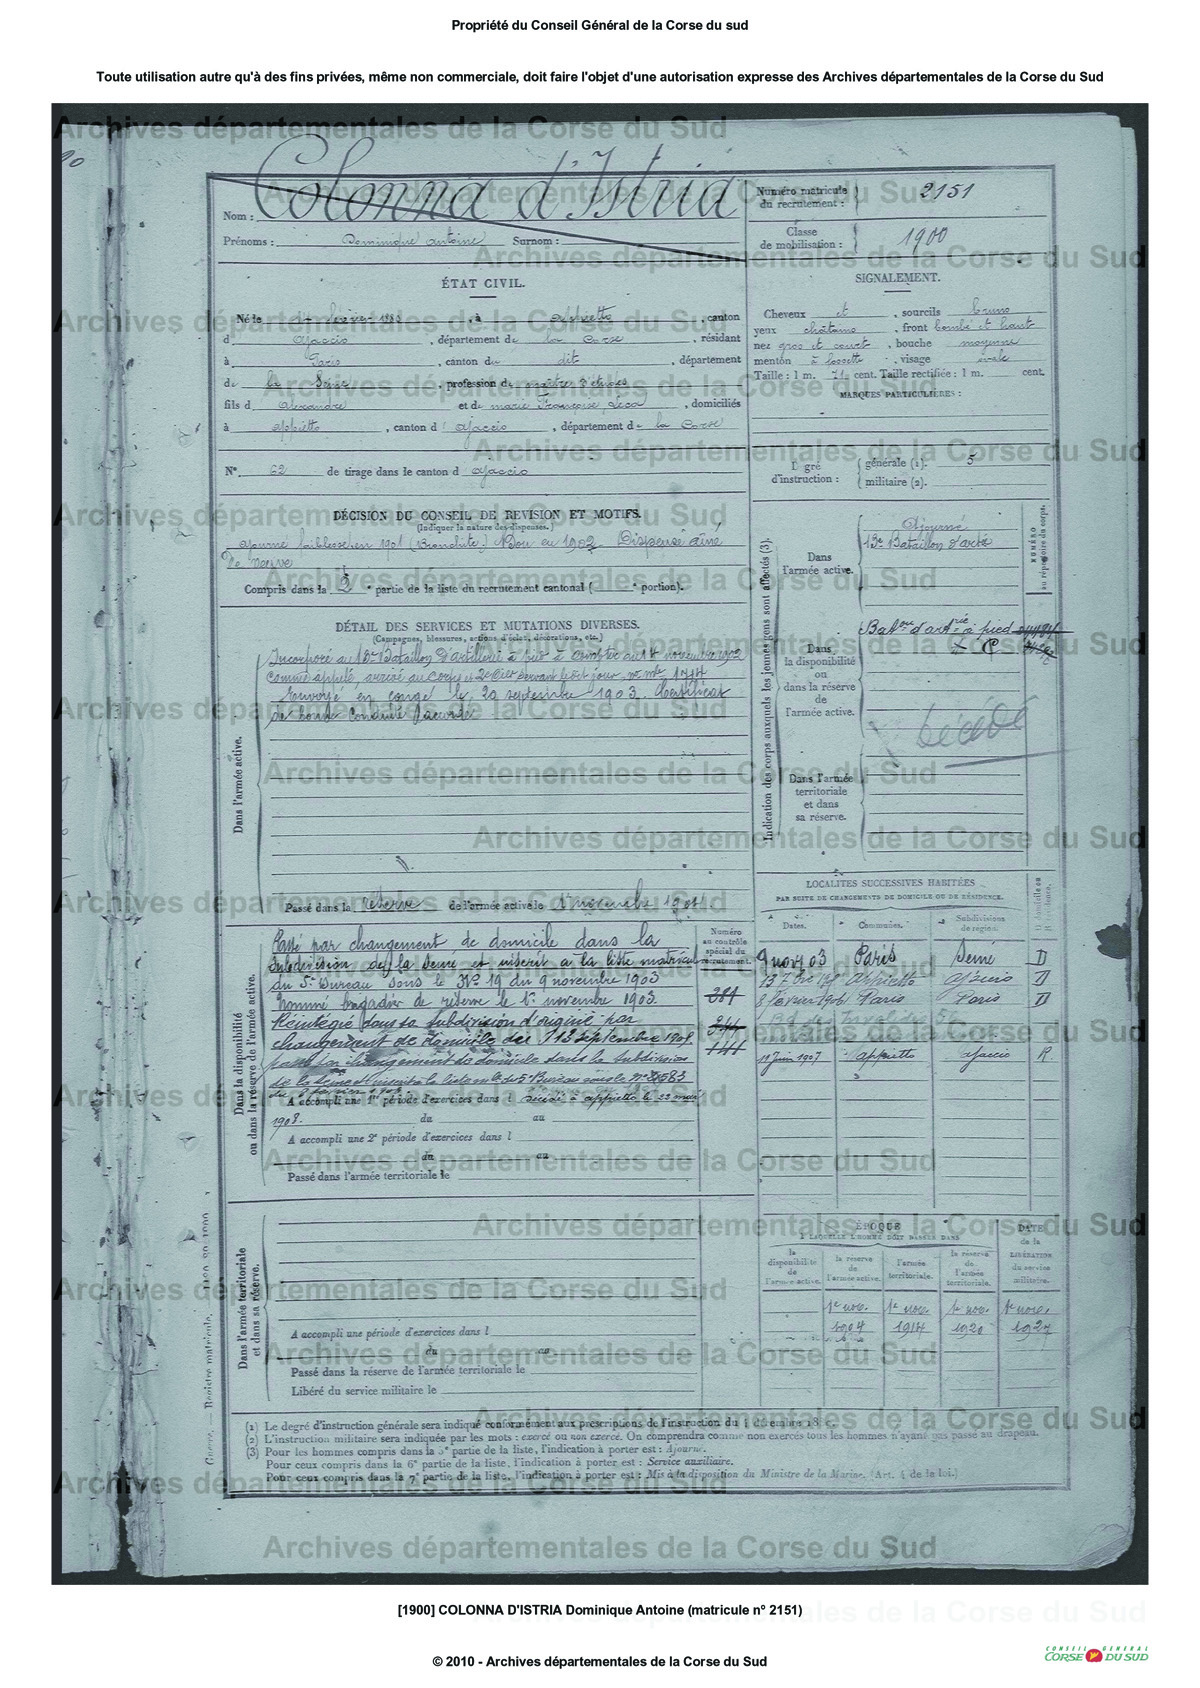 Propriété du Conseil Général de la Corse du sud
Toute utilisation autre qu'à des fins privées, même non commerciale, doit faire l'objet d'une autorisation expresse des Archives départementales de la Corse du Sud
Archives départementales de la Corse du Sud
Colonna d'Istria
Nom :
Prénoms : Dominique Antoine Surnom :
Numéro matricule du recrutement : 2151
Classe de mobilisation : 1900
ÉTAT CIVIL.
Né le février 1880, à Appietto, canton
d Ajaccio, département de la Corse, résidant
à Paris, canton du dit, département
de la Seine, profession de maître d'études
fils d Alexandre et de marie Françoise Leca, domiciliés
à Appietto, canton d'Ajaccio, département de la Corse
N° 62 de tirage dans le canton d Ajaccio
SIGNALEMENT.
Cheveux et, sourcils bruns
yeux châtains, front bombé et haut
nez gros et court, bouche moyenne
menton à fossette, visage ovale
Taille : 1 m. 71 cent. Taille rectifiée : 1 m. cent.
MARQUES PARTICULIÈRES :
Degré d'instruction : générale (1). 5
militaire (2).
DÉCISION DU CONSEIL DE REVISION ET MOTIFS.
(Indiquer la nature des dispenses.)
ajourné faiblesse en 1901 (Bronchite) Bon en 1902 Dispensé aîné
de veuve
Compris dans la 2e partie de la liste du recrutement cantonal ( e portion).
DÉTAIL DES SERVICES ET MUTATIONS DIVERSES.
(Campagnes, blessures, actions d'éclat, décorations, etc.)
Dans l'armée active.
Incorporé au 13e Bataillon d'artillerie à pied à compter du 14 novembre 1902
comme appelé, arrivé au corps et 2e cier servant le dit jour, n° mle 1714
Envoyé en congé le 20 septembre 1903. Certificat
de bonne conduite accordé
Passé dans la réserve de l'armée active le 1er novembre 1904
Indication des corps auxquels les jeunes gens sont affectés (3).
NUMÉRO au répertoire du corps.
Dans l'armée active.
Ajourné
13e Bataillon d'artie
Dans la disponibilité ou dans la réserve de l'armée active.
Baton d'artie à pied
Décédé
Dans l'armée territoriale et dans sa réserve.
LOCALITÉS SUCCESSIVES HABITÉES
PAR SUITE DE CHANGEMENTS DE DOMICILE OU DE RÉSIDENCE.
Dates. Communes. Subdivisions de région.
9 nov 03 Paris Seine D
Appietto Ajaccio D
8 février 1906 Paris Paris D
Bd des Invalides
11 Juin 1907 Appietto Ajaccio R.
Dans la disponibilité ou dans la réserve de l'armée active.
Numéro au contrôle spécial du recrutement.
Passé par changement de domicile dans la
Subdivision de la Seine et inscrit à la liste matricule
du 5e Bureau sous le N° 19 du 9 novembre 1903
Nommé brigadier de réserve le 1er novembre 1903.
Réintégré dans sa subdivision d'origine par
changement de domicile du 13 septembre
passé par changement de domicile dans la subdivision
de la Seine et inscrit à la liste mle du 5e Bureau sous le N°
A accompli une 1re période d'exercices dans l décédé à Appietto le 22 mai
1908. du au
A accompli une 2e période d'exercices dans l
du au
Passé dans l'armée territoriale le
Dans l'armée territoriale et dans sa réserve.
A accompli une période d'exercices dans l
du au
Passé dans la réserve de l'armée territoriale le
Libéré du service militaire le
ÉPOQUE
À LAQUELLE L'HOMME DOIT PASSER DANS
la disponibilité de l'armée active. la réserve de l'armée active. l'armée territoriale. la réserve de l'armée territoriale. DATE de la LIBÉRATION du service militaire.
1er nov. 1er nov. 1er nov. 1er nov.
1904 1914 1920 1927
(1) Le degré d'instruction générale sera indiqué conformément aux prescriptions de l'instruction du décembre
(2) L'instruction militaire sera indiquée par les mots : exercé ou non exercé. On comprendra comme non exercés tous les hommes n'ayant pas passé au drapeau.
(3) Pour les hommes compris dans la 5e partie de la liste, l'indication à porter est : Ajourné.
Pour ceux compris dans la 6e partie de la liste, l'indication à porter est : Service auxiliaire.
Pour ceux compris dans la 7e partie de la liste, l'indication à porter est : Mis à la disposition du Ministre de la Marine. (Art. 4 de la loi.)
[1900] COLONNA D'ISTRIA Dominique Antoine (matricule n° 2151)
© 2010 - Archives départementales de la Corse du Sud
CONSEIL GÉNÉRAL
CORSE DU SUD